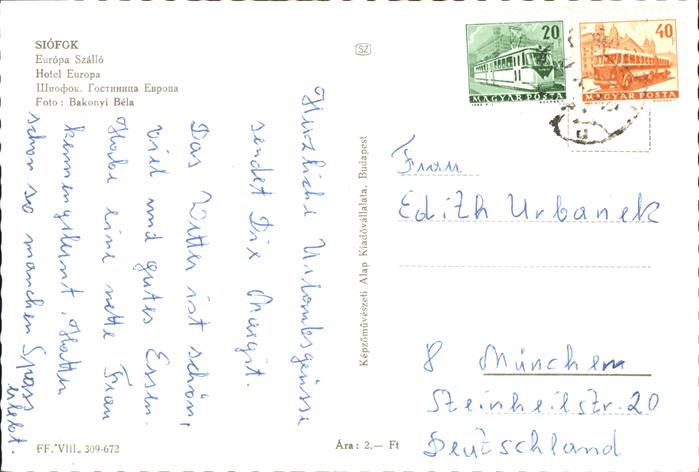 SIÓFOK
Európa Szálló
Hotel Europa
Шиофок. Гостиница Европа
Foto: Bakonyi Béla
SZ
20
MAGYAR POSTA
40f
MAGYAR POSTA
Herzliche Urlaubsgrüsse
sendet Dir Margit.
Das Wetter ist schön,
viel und gutes Essen.
Habe eine nette Frau
kennengelernt. Hatten
schon so manchen Spass
erlebt.
Képzőművészeti Alap Kiadóvállalata, Budapest
Frau
Edith Urbanek
8 München
Steinheilstr. 20
Deutschland
FF. VIII. 309-672
Ára: 2,— Ft